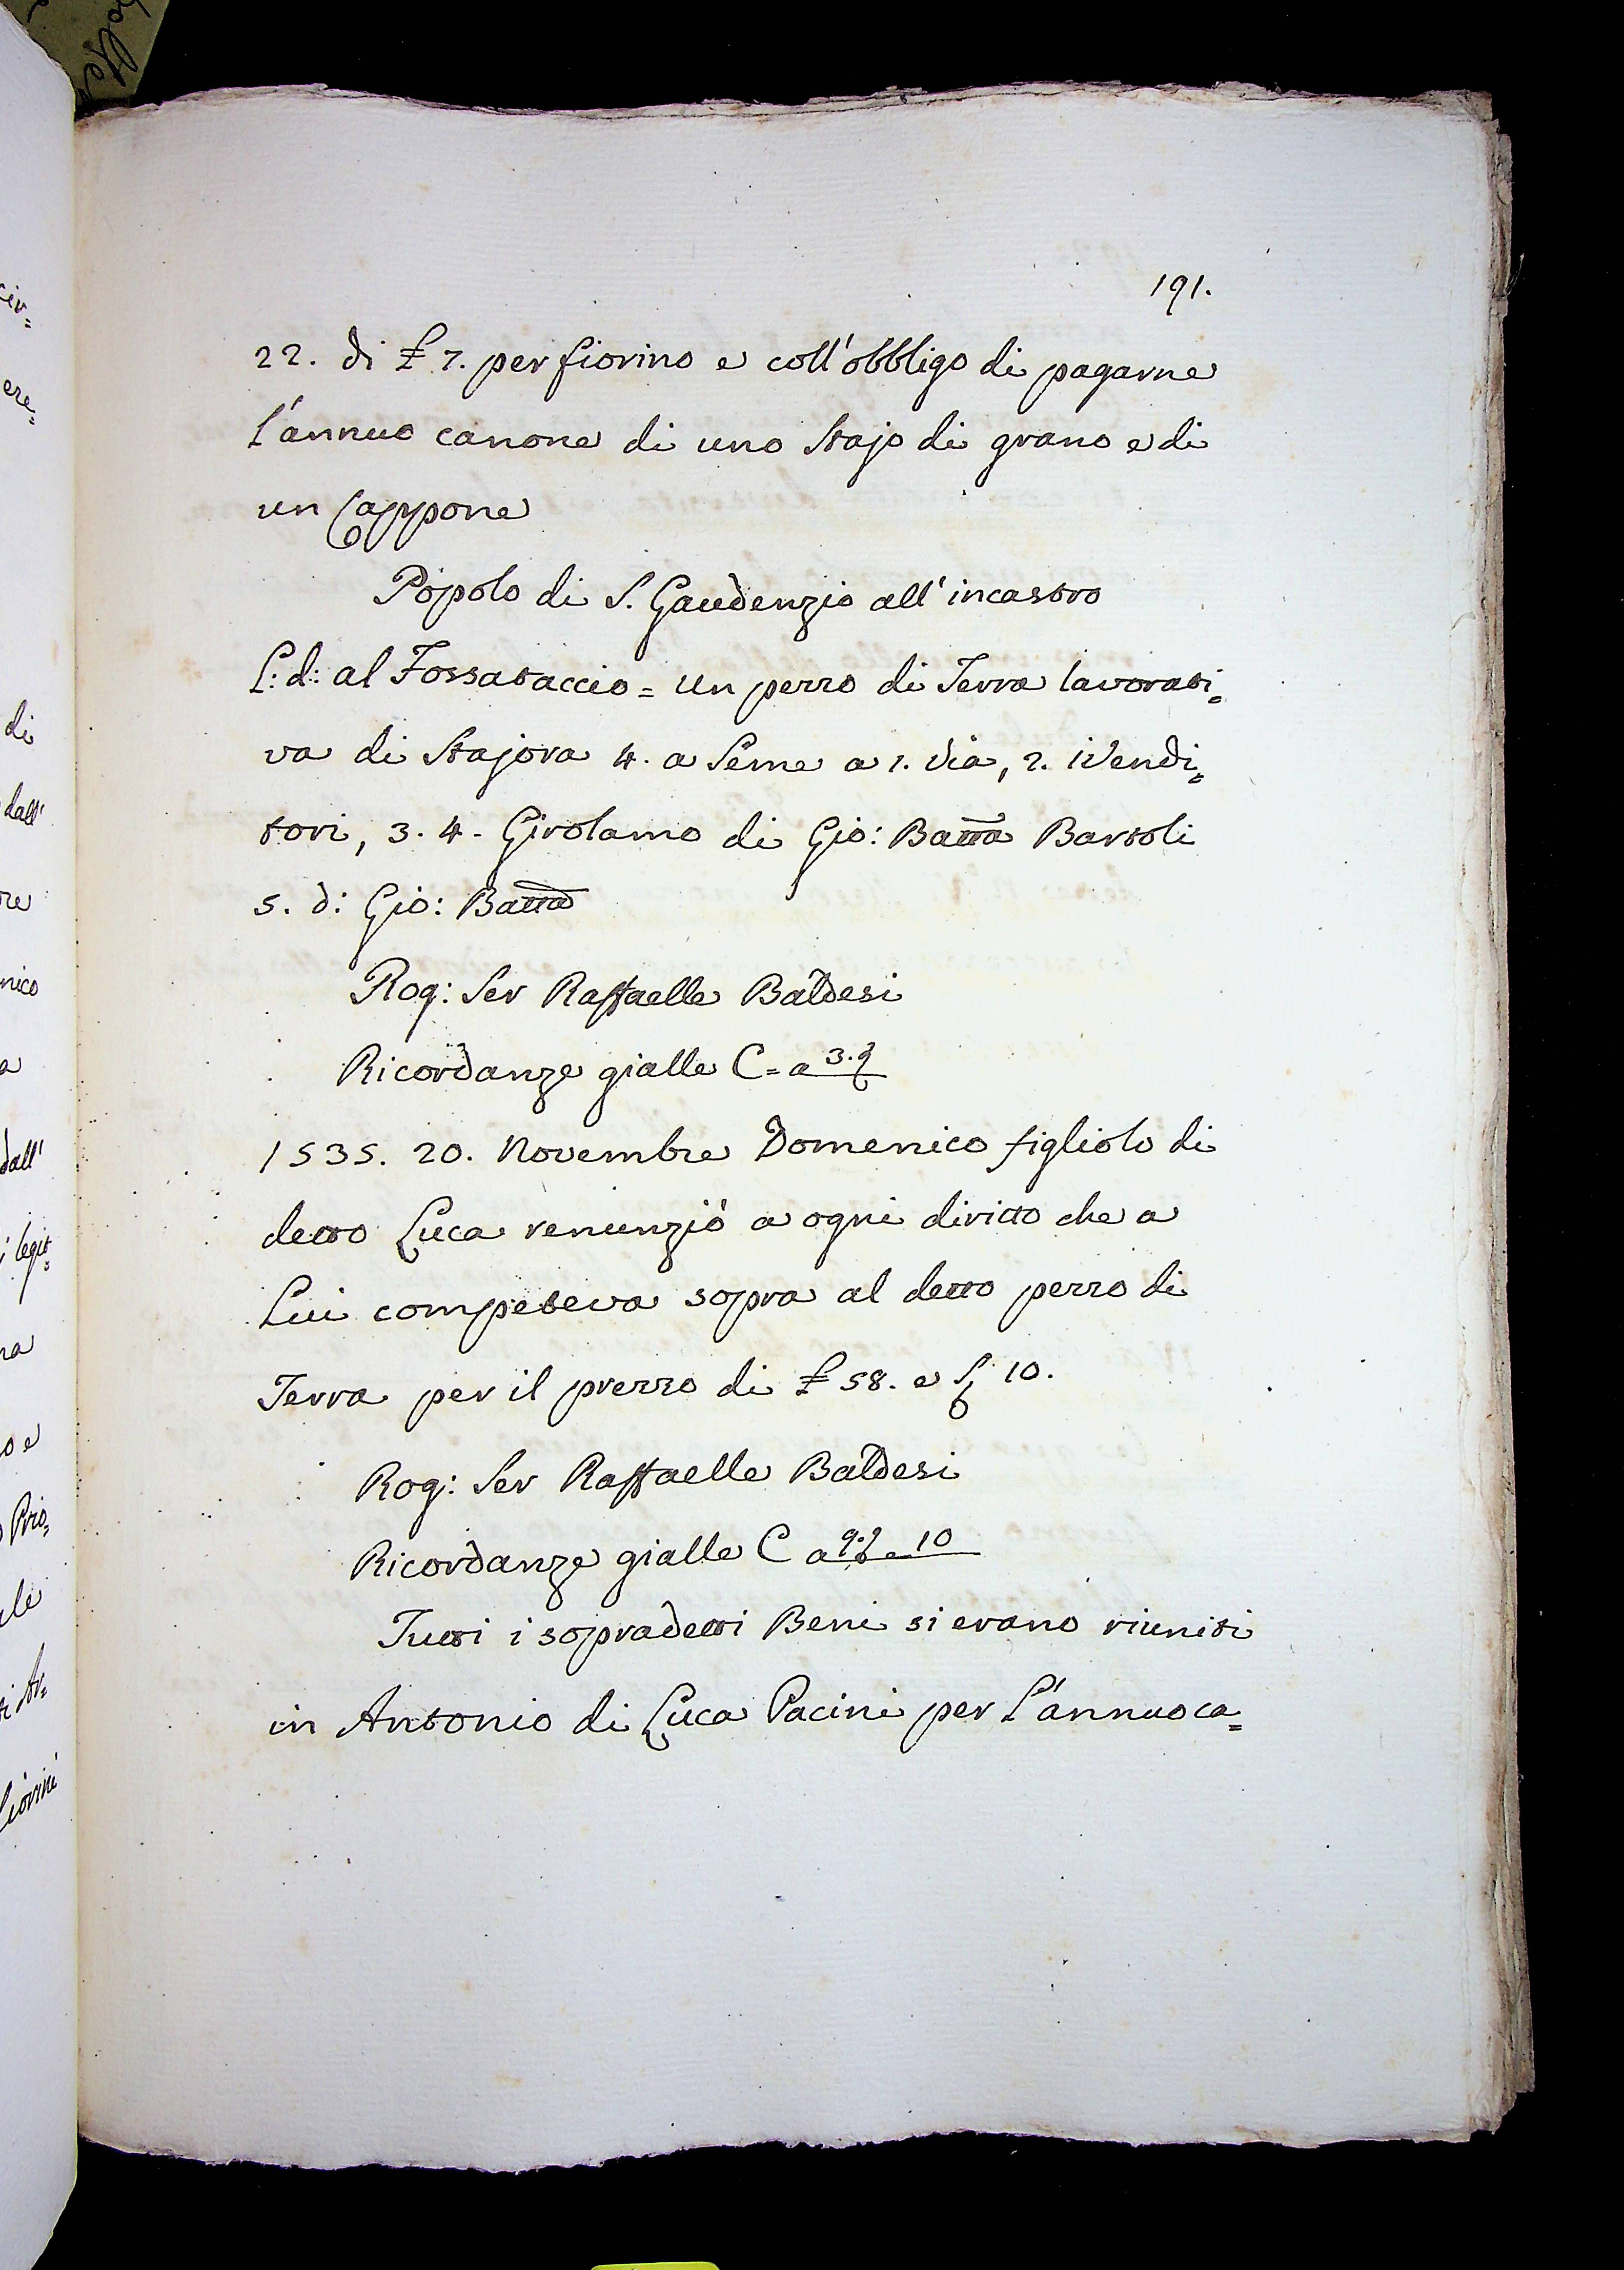 191.
22. di £ 7. per fiorino e coll'obbligo di pagarne
l'annuo canone di uno Stajo di grano e di
un Cappone
Popolo di S. Gaudenzio all'incastro
L: d: al Fossataccio = Un pezzo di Terra lavorati=
va di Stajora 4. a Seme a 1. Via, 2. i Vendi=
tori, 3. 4. Girolamo di Gio: Batta Bartoli
5. d: Gio: Batta
Rog: Ser Raffaelle Baldesi
Ricordanze gialle C = a 3.
1535. 20. Novembre Domenico figliolo di
detto Luca renunziò a ogni diritto che a
Lui competeva sopra al detto pezzo di
Terra per il prezzo di £ 58. e S 10.
Rog: Ser Raffaelle Baldesi
Ricordanze gialle C a 9. e 10
Tutti i sopradetti Beni si erano riuniti
in Antonio di Luca Pacini per L'annuo ca=